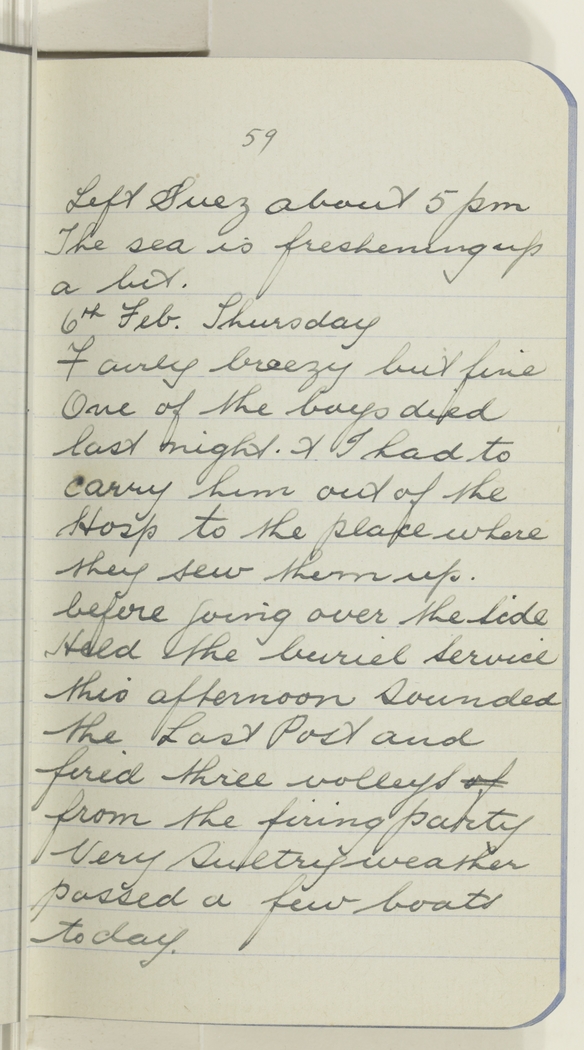 59
Left Suez about 5 pm
The sea is freshening up
a bit.
6th Feb. Thursday
Fairly breezy but fine
One of the boys died
last night. & I had to
carry him out of the
Hosp to the place where
they sew them up.
before going over the side
Held the buriel service
this afternoon sounded
the Last Post and
fired three volleys of
from the firing party
Very sultry weather
passed a few boats
today.